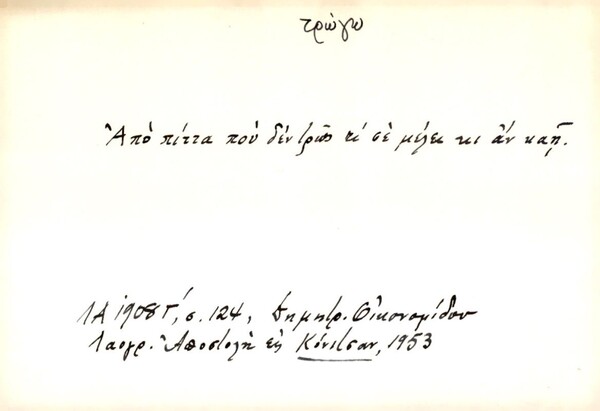 τρώγω
Ἀπὸ πίττα ποὺ δέν τρῶς τί σὲ μέλει κι ἄν καῇ.
ΛΑ 1908 Γ΄, σ. 124, Δημητρ. Οἰκονομίδου
Λαογρ. Ἀποστολὴ εἰς Κόνιτσαν, 1953